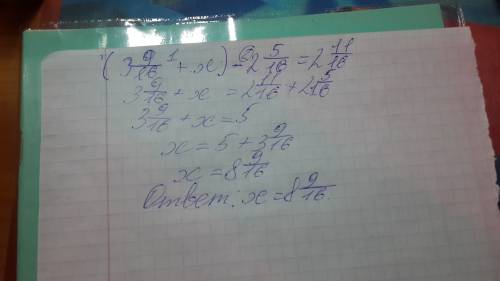 (3 9/16 + x) - 2 5/16 = 2 11/16
3 9/16 + x = 2 11/16 + 2 5/16
3 9/16 + x = 5
x = 5 + 3 9/16
x = 8 9/16
Ответ: x = 8 9/16.